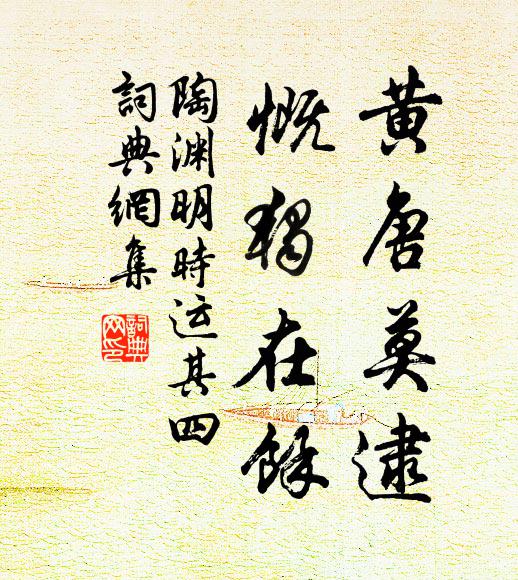 黃唐莫逮
慨獨在餘
陶渊明時运其四
詞典網集
詞典
网印